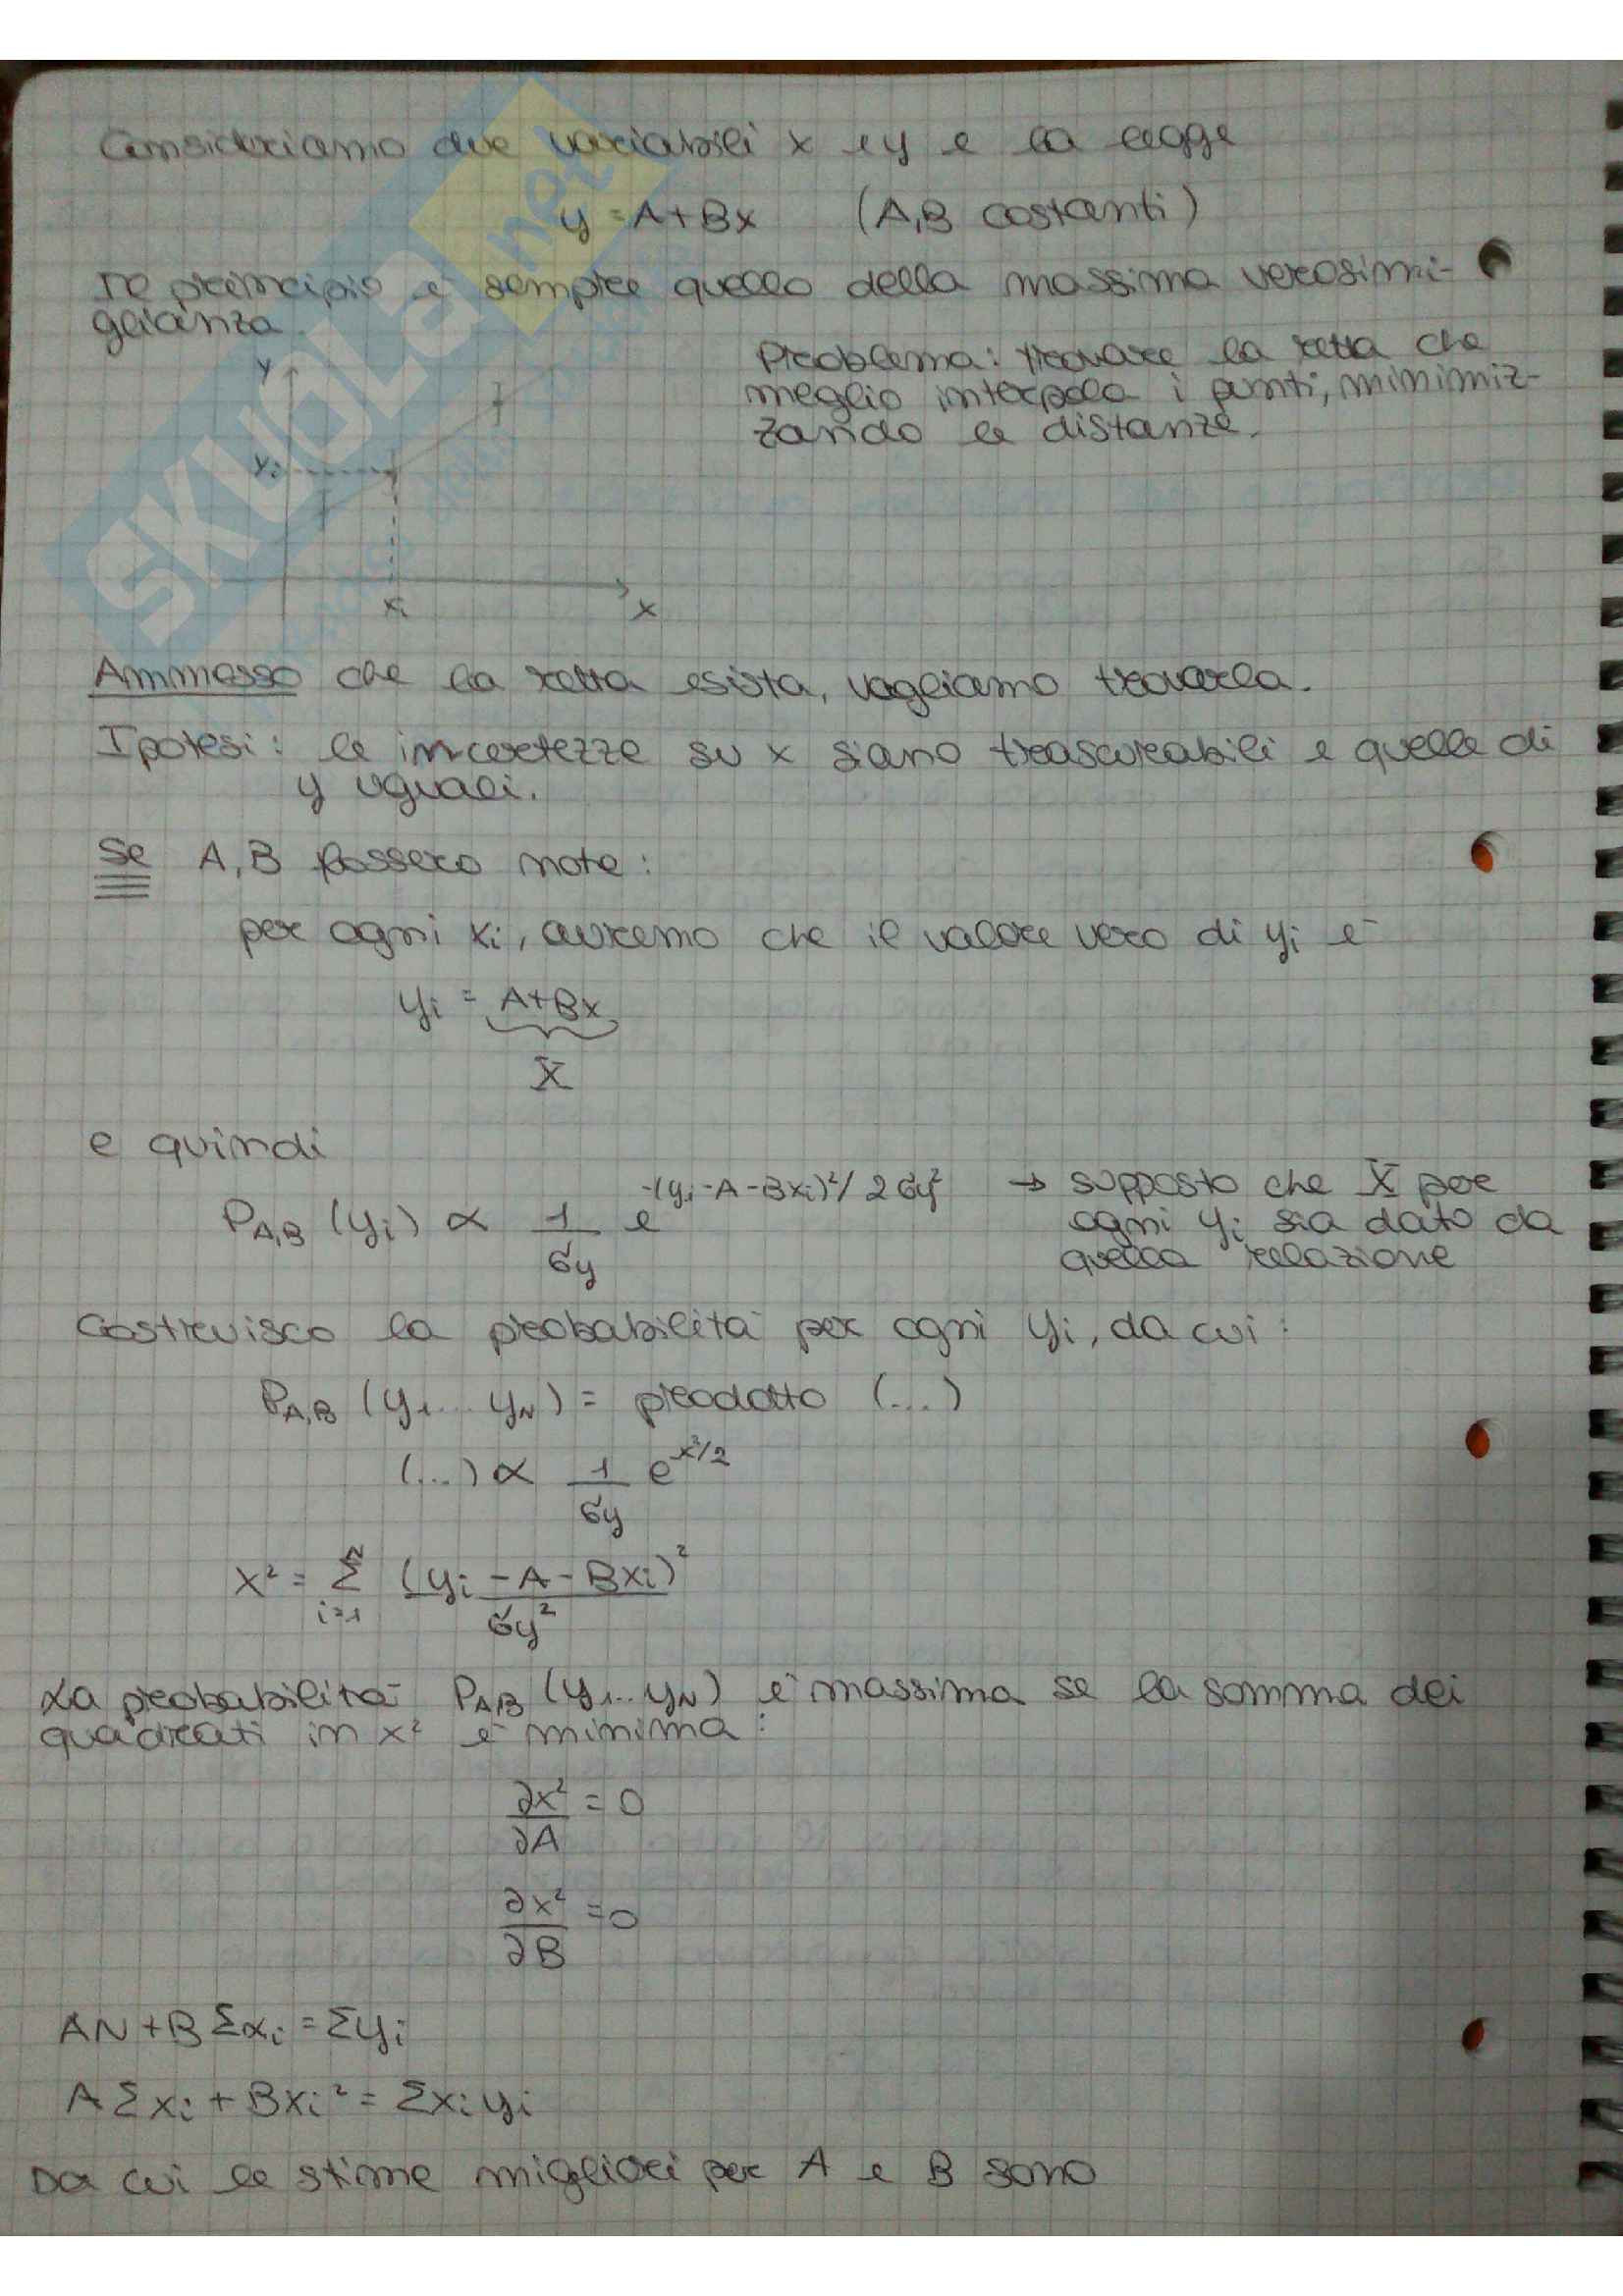 Consideriamo due variabili x e y e la legge
y = A+Bx (A,B costanti)
Il principio è sempre quello della massima verosimi-
glianza.
Problema: trovare la retta che
meglio interpola i punti, minimiz-
zando le distanze.
y
yi
xi
x
Ammesso che la retta esista, vogliamo trovarla.
Ipotesi: le incertezze su x siano trascurabili e quelle di
y uguali.
Se A,B fossero note:
per ogni xi, avremo che il valore vero di yi è
yi = A+Bx
X
e quindi
P_A,B (yi) ∝ 1/σy e^-(yi-A-Bxi)²/2σy² → supposto che X per
ogni yi sia dato da
quella relazione
Costruisco la probabilità per ogni yi, da cui:
P_A,B (y1... yN) = prodotto (...)
(...) ∝ 1/σy e^-x²/2
x² = Σ_{i=1}^{N} (yi - A - Bxi)²/σy²
La probabilità P_A,B (y1..yN) è massima se la somma dei
quadrati in x² è minima:
∂x²/∂A = 0
∂x²/∂B = 0
AN + BΣxi = Σyi
AΣxi + Bxi² = Σxiyi
Da cui le stime migliori per A e B sono
SKUOLa.net